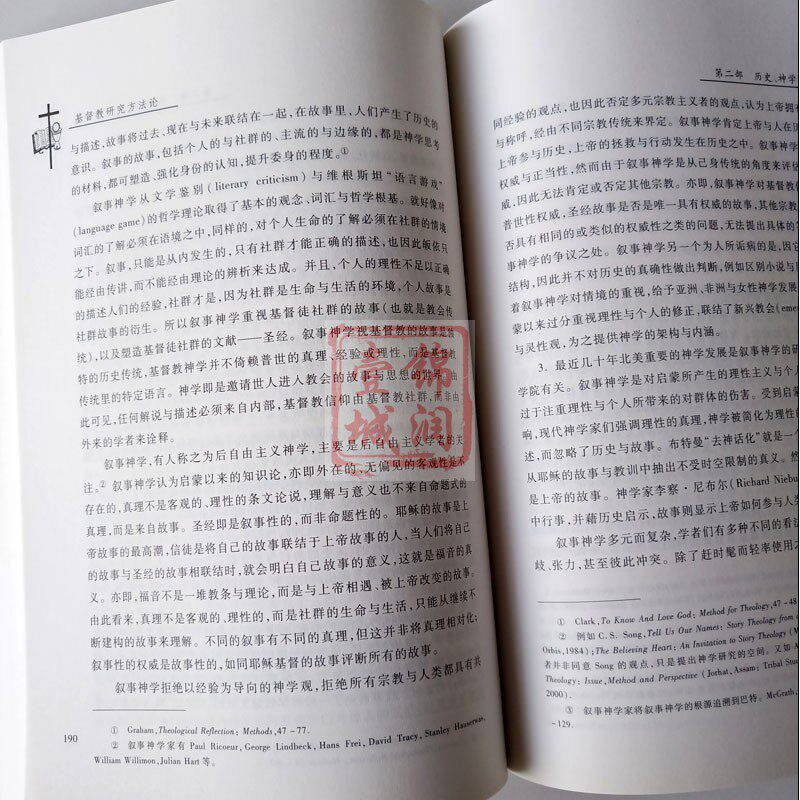 基督教研究方法论
与描述,故事将过去、现在与未来联结在一起,在故事里,人们产生了历史的
意识。叙事的故事,包括个人的与社群的、主流的与边缘的,都是神学思考
的材料,都可塑造、强化身份的认知,提升委身的程度。①
叙事神学从文学鉴别(literary criticism)与维根斯坦“语言游戏”
(language game)的哲学理论取得了基本的观念、词汇与哲学根基。就好像对
词汇的了解必须在语境之中,同样的,对个人生命的了解必须在社群的情境
之下。叙事,只能是从内发生的,只有社群才能正确的描述,也因此皈依只
能经由传讲,而不能经由理论的辨析来达成。并且,个人的理性不足以正确
的描述人们的经验,社群才是,因为社群是生命与生活的环境,个人故事是
社群故事的衍生。所以叙事神学重视基督徒社群的故事(也就是教会传
统),以及塑造基督徒社群的文献——圣经。叙事神学视基督教的故事是独
特的历史传统,基督教神学并不倚赖普世的真理、经验或理性,而是基督教
传统里的特定语言。神学即是邀请世人进入教会的故事与思想的世界。由
此可见,任何解说与描述必须来自内部,基督教信仰由基督教社群,而非由
外来的学者来诠释。
叙事神学,有人称之为后自由主义神学,主要是后自由主义学者的关
注。②叙事神学认为启蒙以来的知识论,亦即外在的、无偏见的客观性是不
存在的,真理不是客观的、理性的条文论说,理解与意义也不来自命题式的
真理,而是来自故事。圣经即是叙事性的,而非命题性的。耶稣的故事是上
帝故事的最高潮,信徒是将自己的故事联结于上帝故事的人,当人们将自己
的故事与圣经的故事相联结时,就会明白自己故事的意义,这就是福音的真
义。亦即,福音不是一堆教条与理论,而是与上帝相遇、被上帝改变的故事。
由此看来,真理不是客观的、理性的,而是社群的生命与生活,只能从继续不
断建构的故事来理解。不同的叙事有不同的真理,但这并非将真理相对化;
叙事性的权威是故事性的,如同耶稣基督的故事评断所有的故事。
叙事神学拒绝以经验为导向的神学观,拒绝所有宗教与人类都具有共
① Graham,Theological Reflection: Methods,47 -77.
② 叙事神学家有 Paul Ricoeur, George Lindbeck, Hans Frei, David Tracy, Stanley Hauserwas,
William Willimon,Julian Hart 等。
190
第二部 历史、神学
同经验的观点,也因此否定多元宗教主义者的观点,认为上帝拥
与称呼,经由不同宗教传统来界定。叙事神学肯定上帝与人在历
上帝参与历史,上帝的拯救与行动发生在历史之中。叙事神学
权威与正当性,然而由于叙事神学是从己身传统的角度来评估
威,因此无法肯定或否定其他宗教。亦即,叙事神学对基督教信
普世性权威,圣经故事是否是唯一具有权威的故事,其他宗教
否具有相同的或类似的权威性之类的问题,无法提出具体的
事神学的争议之处。叙事神学另一个为人所诟病的是,因它
结构,因此并不对历史的真确性做出判断,例如区别小说与
着叙事神学对情境的重视,给予亚洲、非洲与女性神学发展
蒙以来过分重视理性与个人的修正,联结了新兴教会(eme
与灵性观,为之提供神学的架构与内涵。
3. 最近几十年北美重要的神学发展是叙事神学的研
学院有关。叙事神学是对启蒙所产生的理性主义与个人
过于注重理性与个人所带来的对群体的伤害。受到
响,现代神学家们强调理性的真理,神学被简化为理性的
述,而忽略了历史与故事。布特曼“去神话化”就是一个
从耶稣的故事与教训中抽出不受时空限制的真义。然
是上帝的故事。神学家李察·尼布尔(Richard Niebu
中行事,并藉历史启示,故事则显示上帝如何参与人类
叙事神学多元而复杂,学者们有多种不同的看法
歧、张力,甚至彼此冲突。除了赶时髦而轻率使用
① Clark,To Know And Love God: Method for Theology,47 -48
② 例如 C. S. Song,Tell Us Our Names: Story Theology from
Orbis,1984);The Believing Heart: An Invitation to Story Theology (M
者并非同意 Song 的观点,只是提出神学研究的空间。又如 A
Theology: Issue,Method and Perspective (Jorhat,Assam: Tribal Stud
2000).
③ 叙事神学家将叙事神学的根源追溯到巴特。McGrath,
-129.
锦润
壹城